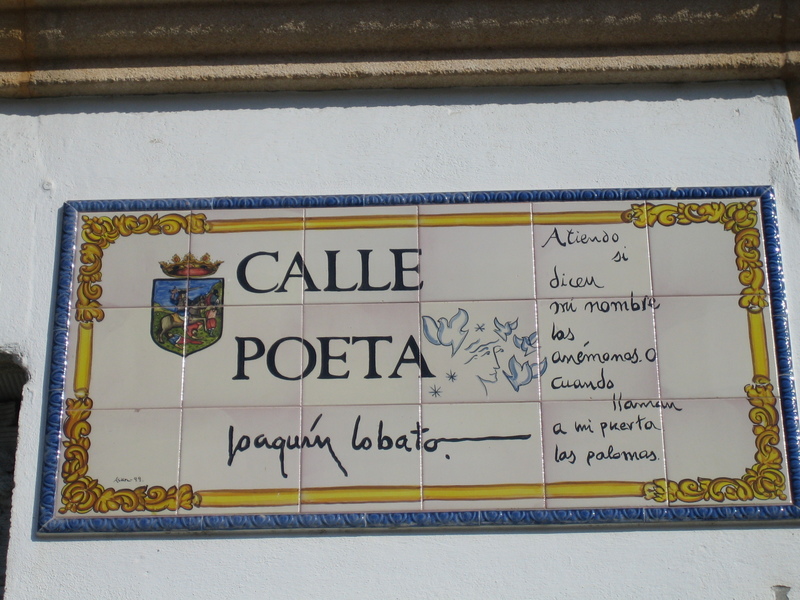 CALLE
POETA
Joaquín Lobato.
Atiendo
si
dicen
mi nombre
las
anémonas. O
cuando
llaman
a mi puerta
las palomas.